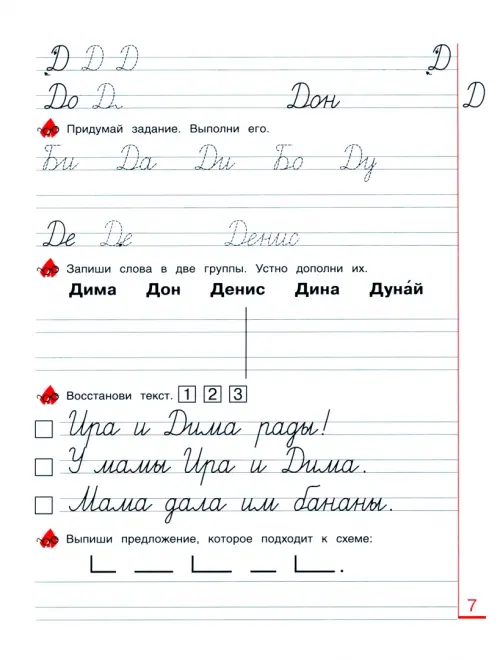 Д Д Д Д
До Д Дон Д
Придумай задание. Выполни его.
Би Да Ди Бо Ду
Де Де Денис
Запиши слова в две группы. Устно дополни их.
Дима Дон Денис Дина Дуна́й
Восстанови текст. 1 2 3
Ира и Дима рады!
У мамы Ира и Дима.
Мама дала им бананы.
Выпиши предложение, которое подходит к схеме:
7